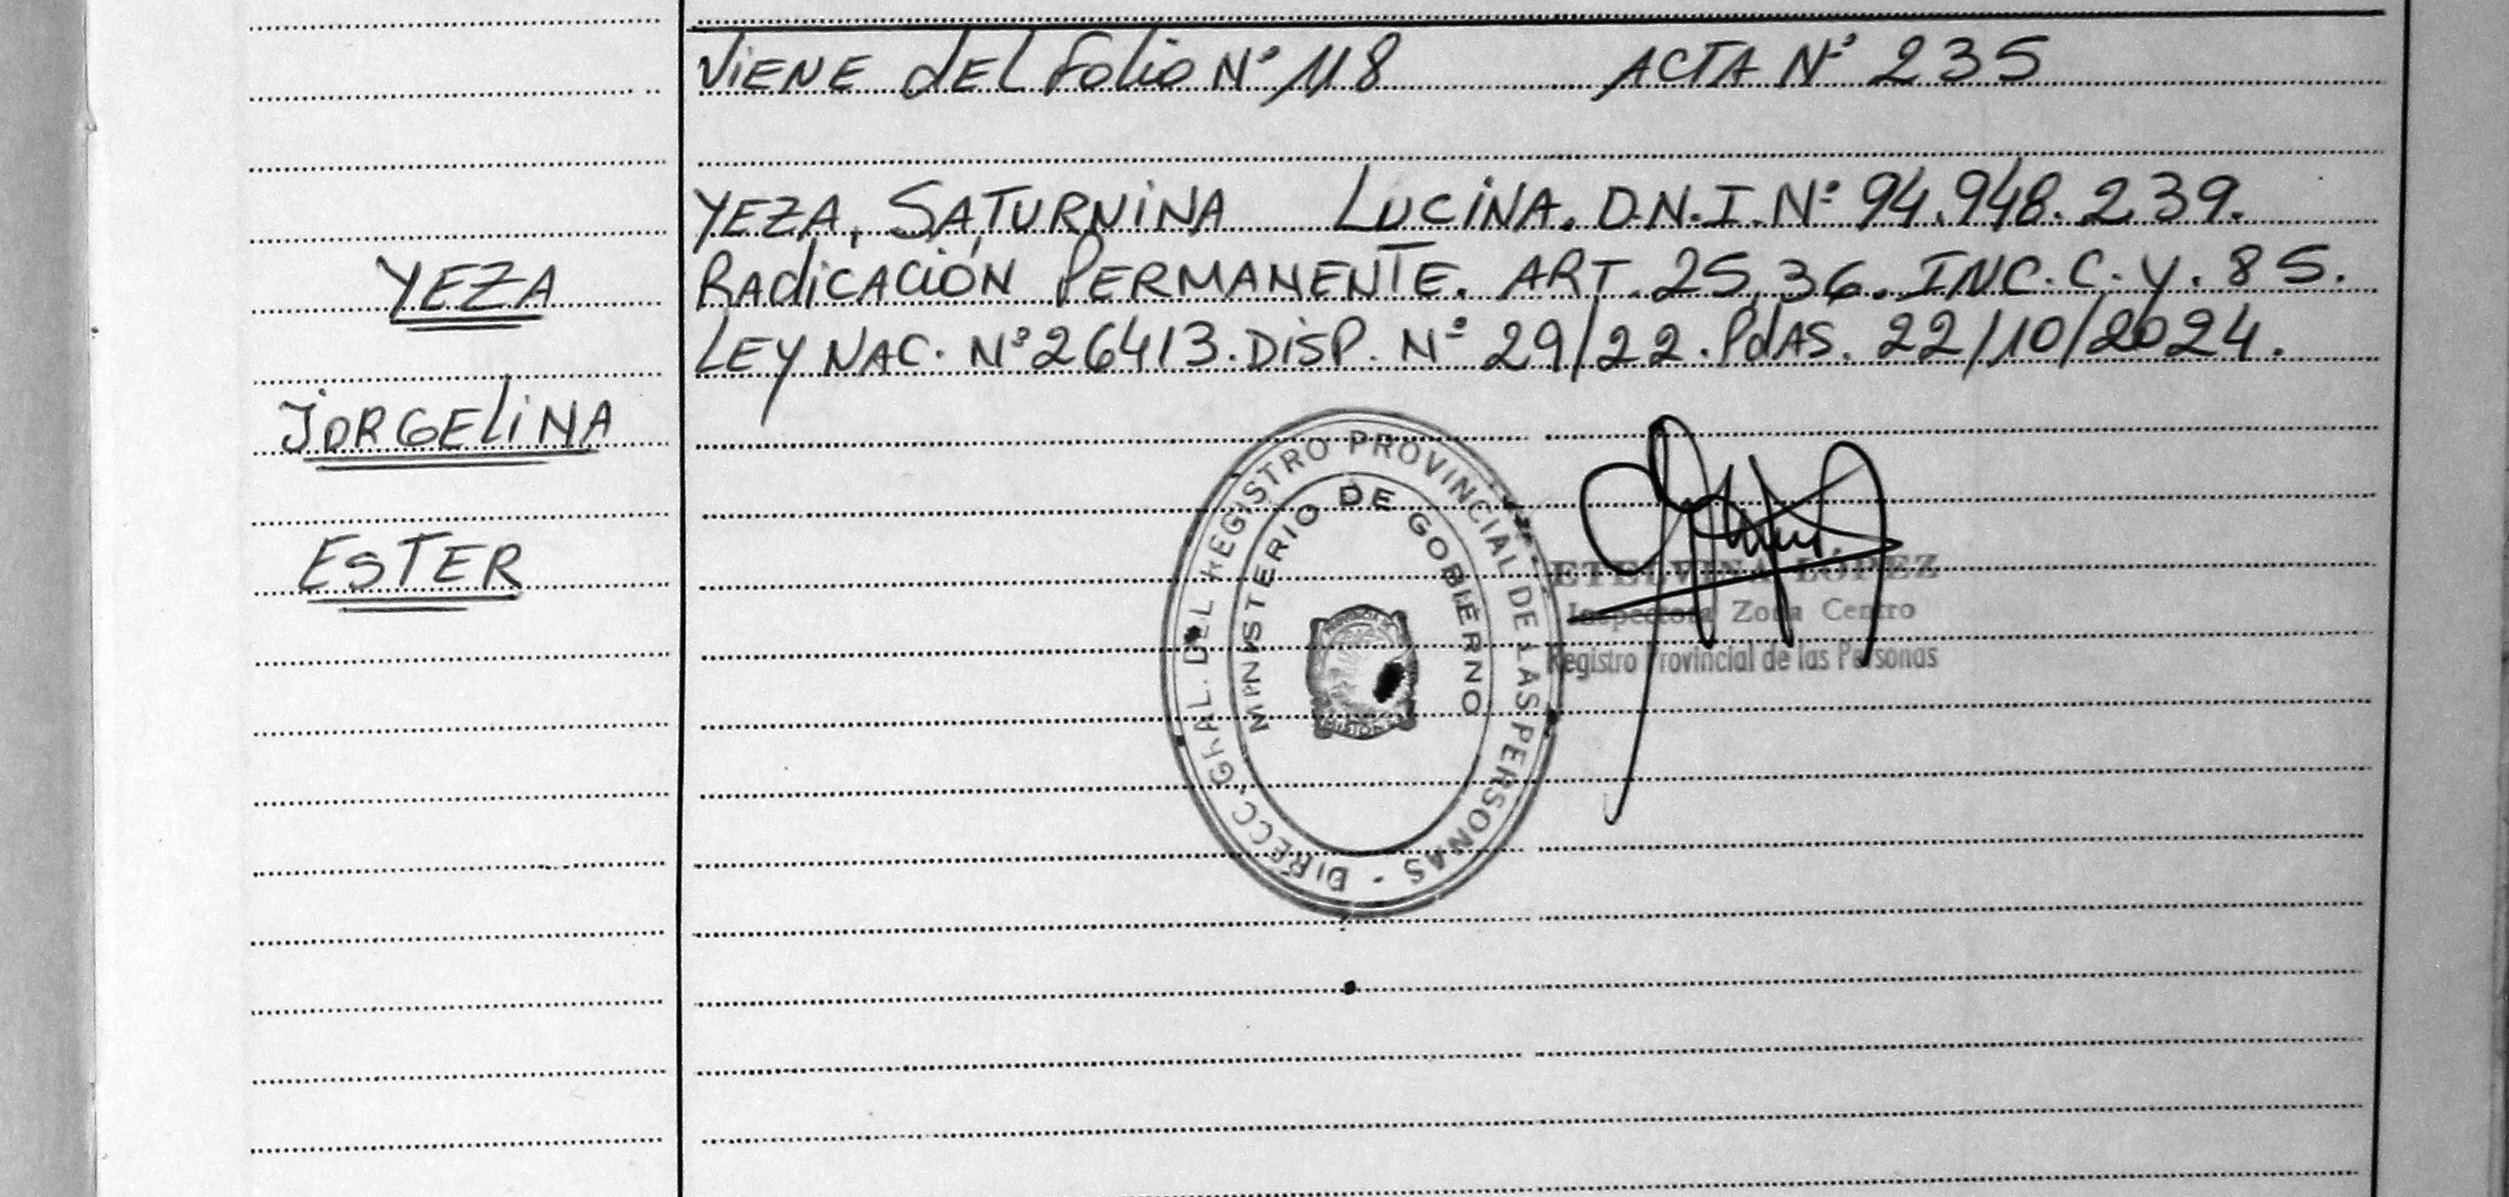 ViENE dEL folio Nº 118 ACTA Nº 235
YEZA, SATURNiNA LUCiNA. D.N.I.Nº 94.948.239.
RAdiCACiÓN PERMANENTE. ART. 25,36. INC. C. Y. 85.
LEY NAC. Nº 26413. DiSP. Nº 29/22. PdAS. 22/10/2024.
YEZA
JORGELiNA
ESTER
DIRECC. GRAL. DEL REGISTRO PROVINCIAL DE LAS PERSONAS -
MINISTERIO DE GOBIERNO
ETELVINA LÓPEZ
Inspectora Zona Centro
Registro Provincial de las Personas